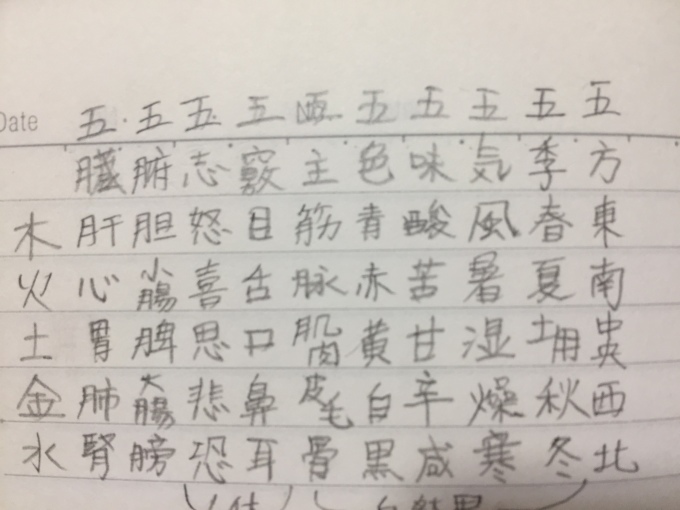 Date 五 五 五 五 五 五 五 五 五
臓 腑 志 竅 主 色 味 気 季 方
木 肝 胆 怒 目 筋 青 酸 風 春 東
火 心 小腸 喜 舌 脉 赤 苦 暑 夏 南
土 胃 脾 思 口 肌肉 黄 甘 湿 土用 中央
金 肺 大腸 悲 鼻 皮毛 白 辛 燥 秋 西
水 腎 膀 恐 耳 骨 黒 咸 寒 冬 北